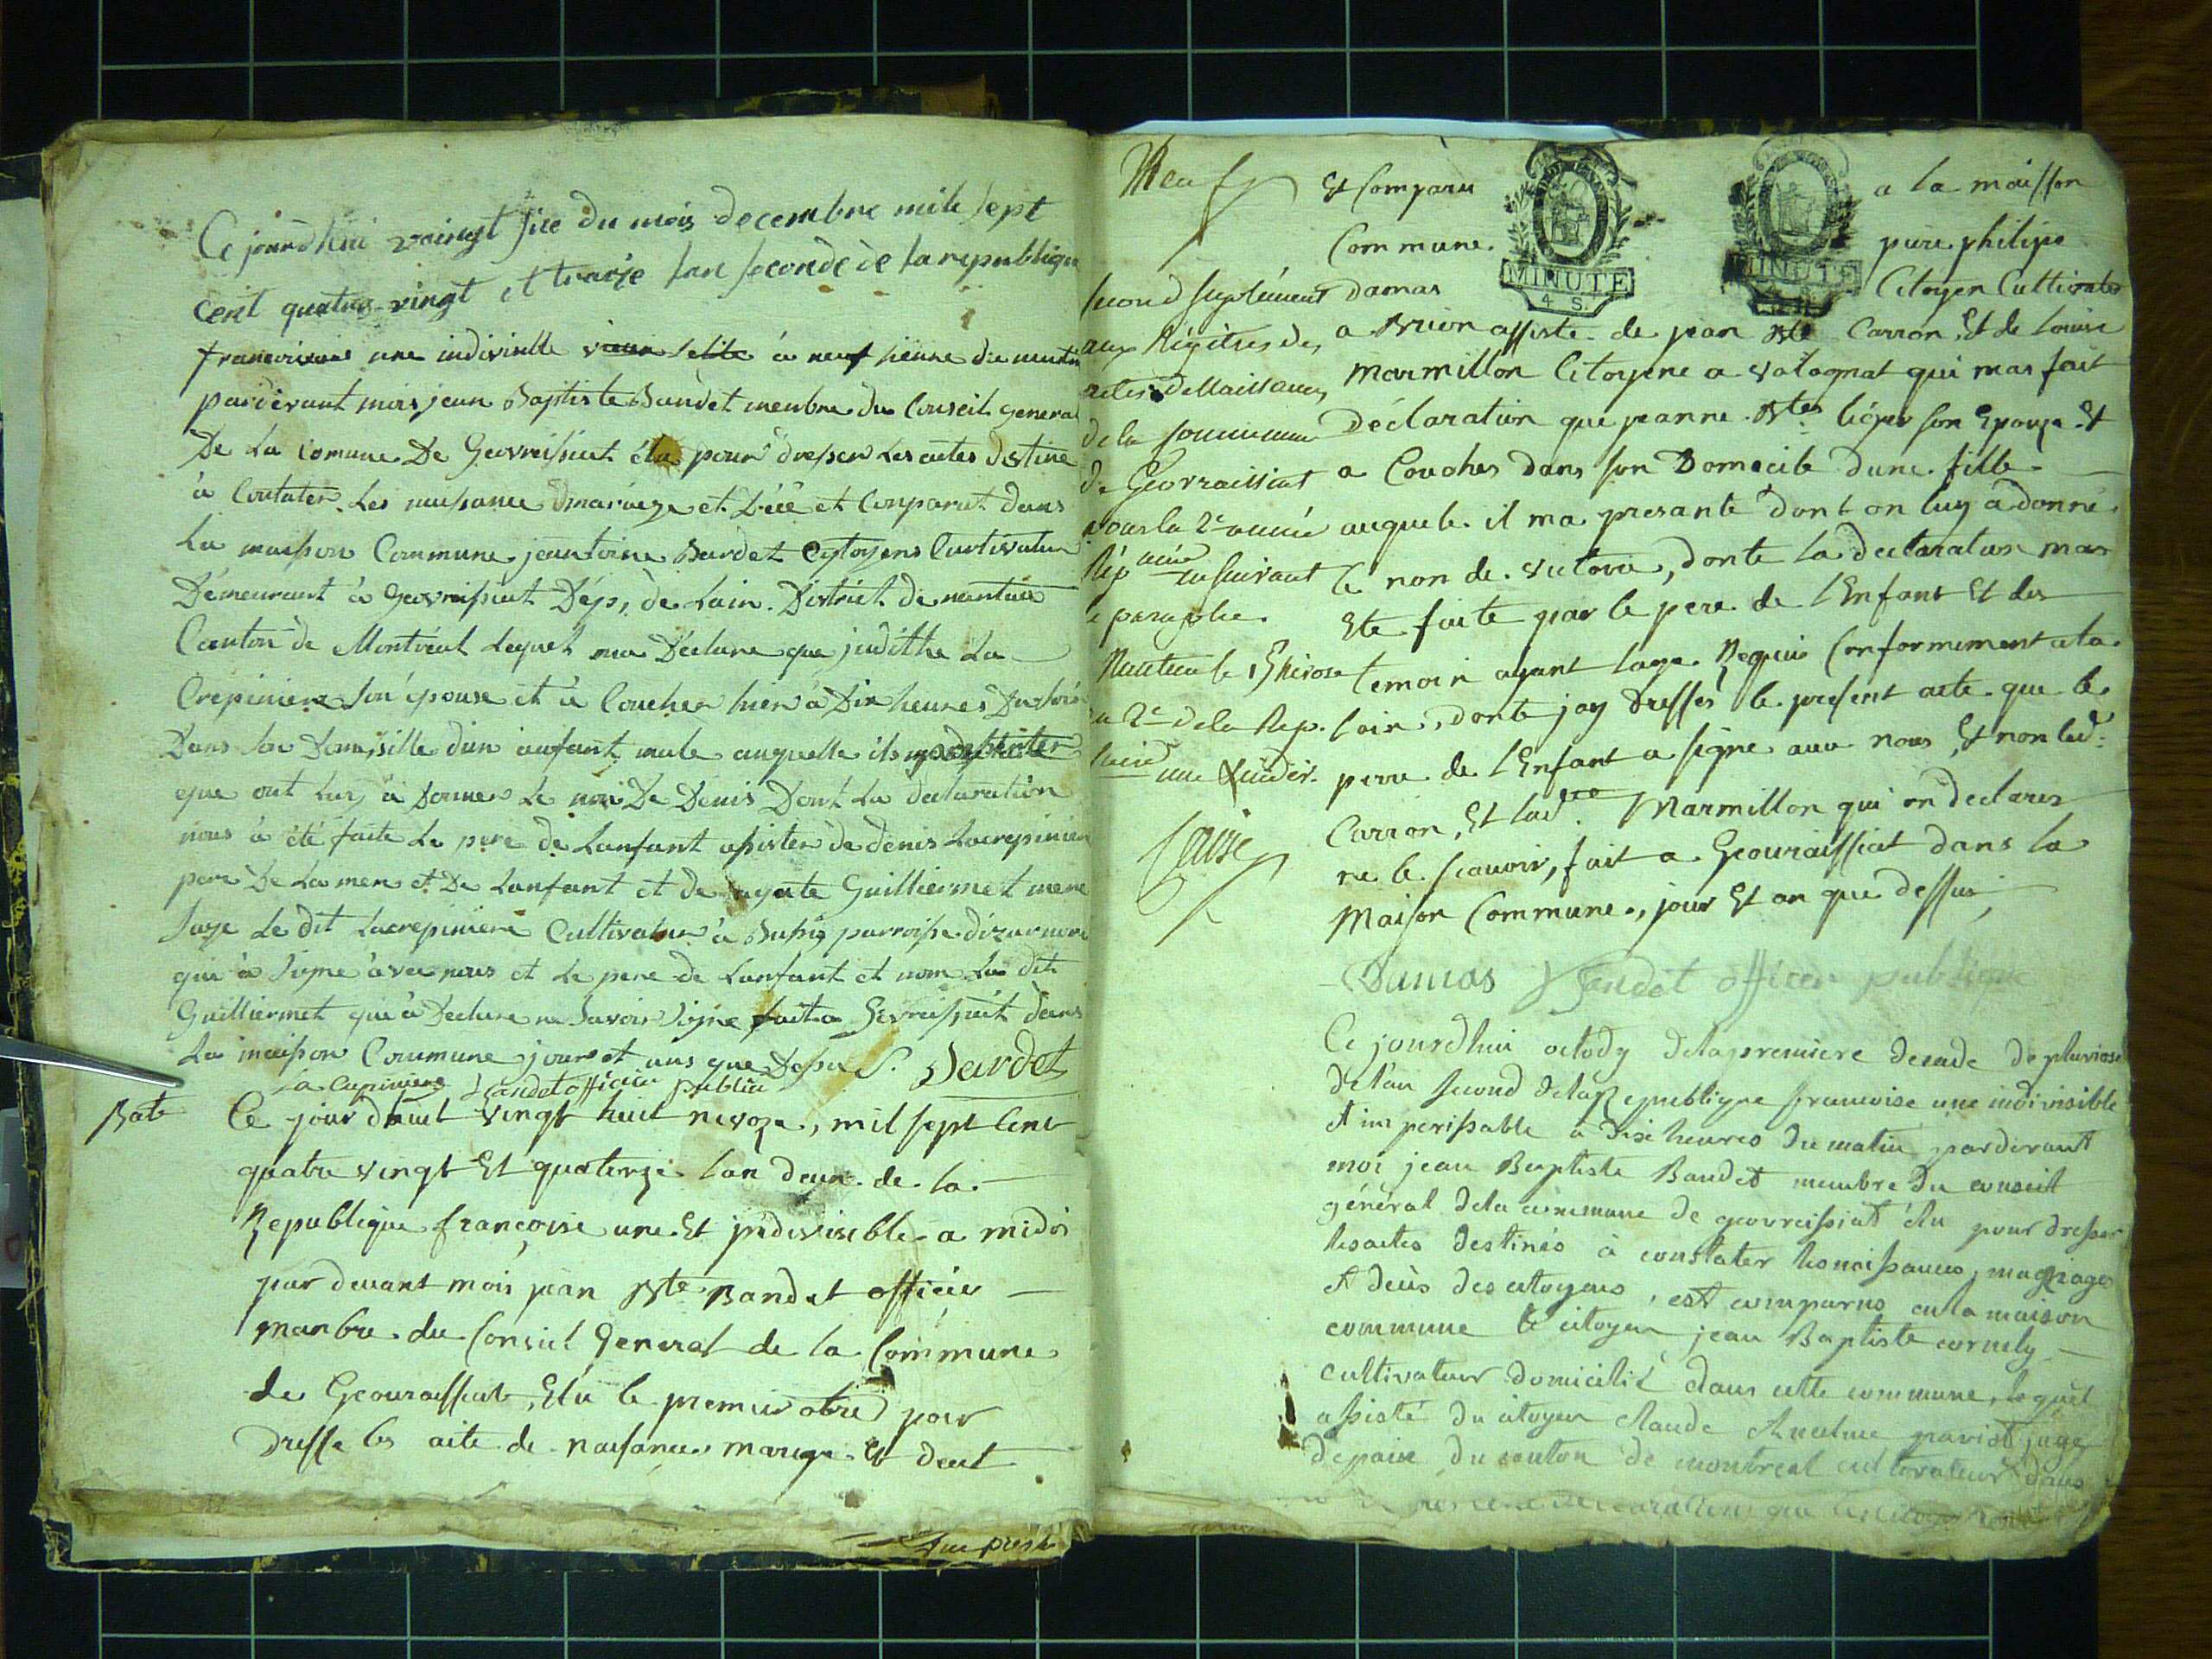 Ce jourd'hui vaingt sice du mois decembre mile sept
cent quatres-vingt et traize lan seconde de la republique
francoise une indivisible à neuf heure du matin
pardevant mois jean Baptiste Baudet menbre du Conseil general
De La comune De Geovreissiat élu pour dresser Les actes destiné
à Contater Les naissance mariage et Décé et Conparut dans
La maison Commune jeantoine Bardet Cytoyens Cultivateur
Démeurant à Geovreissiat Dép, de Lain. District de nantua
Canton de Montréal Lequel ma Déclare que judithe La
Crepiniere son épouse et à Coucher hier à Dix heures Du soir
Dans son Domisille dun anfant male auquelle ils
que ont Luy à Donner Le non De Denis Dont La declaration
nous à été faite Le pere de Lanfant assister de denis Lacrepiniere
pere De La mere et De Lanfant et de agate Guilliermet mere
sage Le dit Lacrepiniere Cultivateur à Bussis parroisse dizernore
qui à signe avec nous et Le pere de Lanfant et nom La dite
Guilliermet qui à Declare ne savoir signe fait a Gevreissiat dans
La maison Commune jour et ans que Dessu S. Bardet
La Crepiniere Baudet officier public
Ce jour dhuit vingt huit nivoze, mil sept Cent
quatre vingt Et quaterze lan deux de la
Republique françoise une Et jndivisible a midis
par devant mois jean Bte Bandet officier
manbre du Conseil General de la Commune
de Geouraissiat, Elu le premier pour
dresse les aite de naisance mariage Et deces
Neuf
Et Comparu a la maisson
Commune. pierre philipe
MINUTE
4 S.
MINUTE
second suplément damas Citoyen Cultivateur
aux Régitres des a Brion assiste de jean Bte Carron, Et de Louise
actes de Naissances Marmillon Citoyene a Volognat qui mas fait
de la commune déclaration que jeanne Bte léger son Epouze Et
de Geovraissiat a Couches dans son Domecile dune fille
pour la 2e année auquele il ma presante dont on luy a donné
Rép en suivant le non de victoire, donte la declaration mas
le paraphe. Ete faite par le pere de lEnfant Et des
Nantua le nivose temoin ayant lage Requis Conformement ala
an 2e de la Rep. loix, donte jay dressés le present acte que le
une & indiv. pere de lEnfant a signe avec nous, Et non led:
Carron, Et lad: Marmillon qui on declarer
ne le scavoir, fait a Geouraissiat dans la
Maison Commune, jour Et an que dessus,
Damas Bandet officer publique
Ce jourdhui octody dela premiere decade de pluviose
de lan second de la Republique francoise une indivisible
et imperissable à dix heures du matin pardevant
moi jean Baptiste Bandet membre du conseil
général dela commune de geovreissiat élu pour dresser
les actes destinés à constater les naissances, mariages
et décès des citoyens, est comparus en la maison
commune le citoyen jean Baptiste cornely
cultivateur domicilié dans cette commune, lequel
assisté du citoyen claude Anselme juge
depaix du canton de montreal cultivateur dans